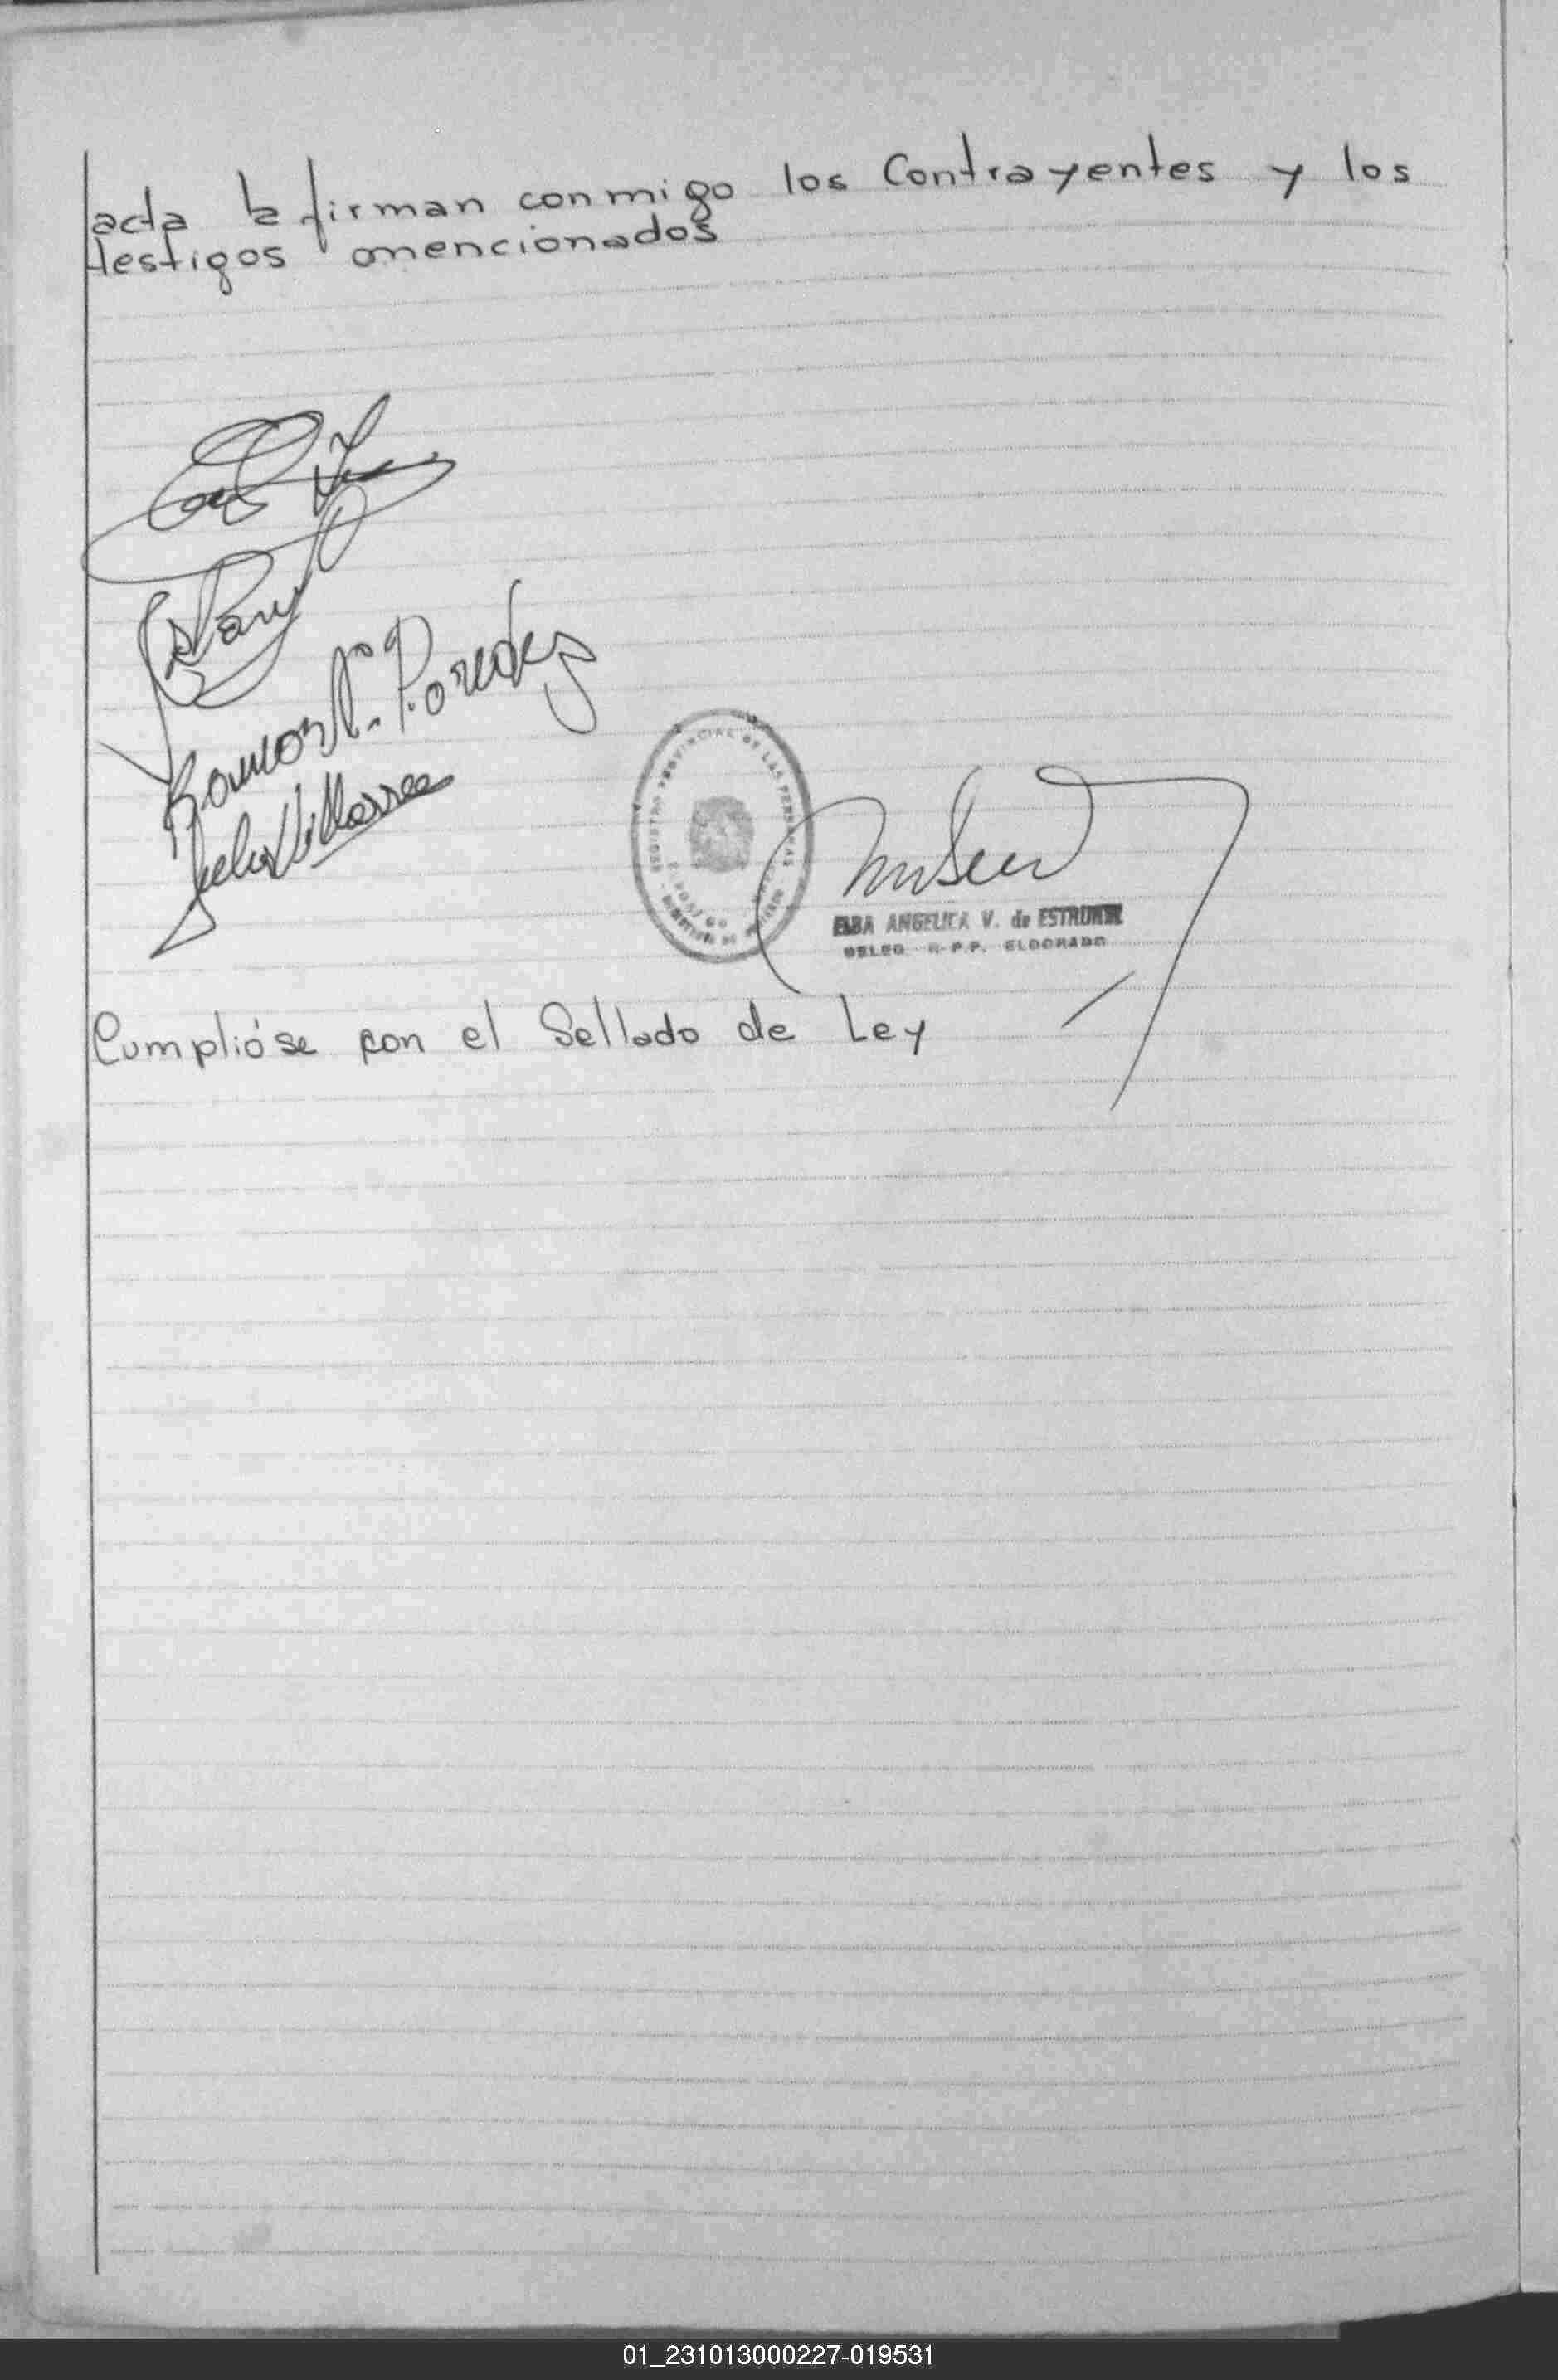 acta la firman conmigo los Contrayentes y los
testigos mencionados
Ramon A. Paredes
Villarrea
REGISTRO PROVINCIAL DE LAS PERSONAS
ELDORADO
ELBA ANGELICA V. de
DELEG. R.P.P. ELDORADO
Cumplióse con el Sellado de Ley
01_231013000227-019531